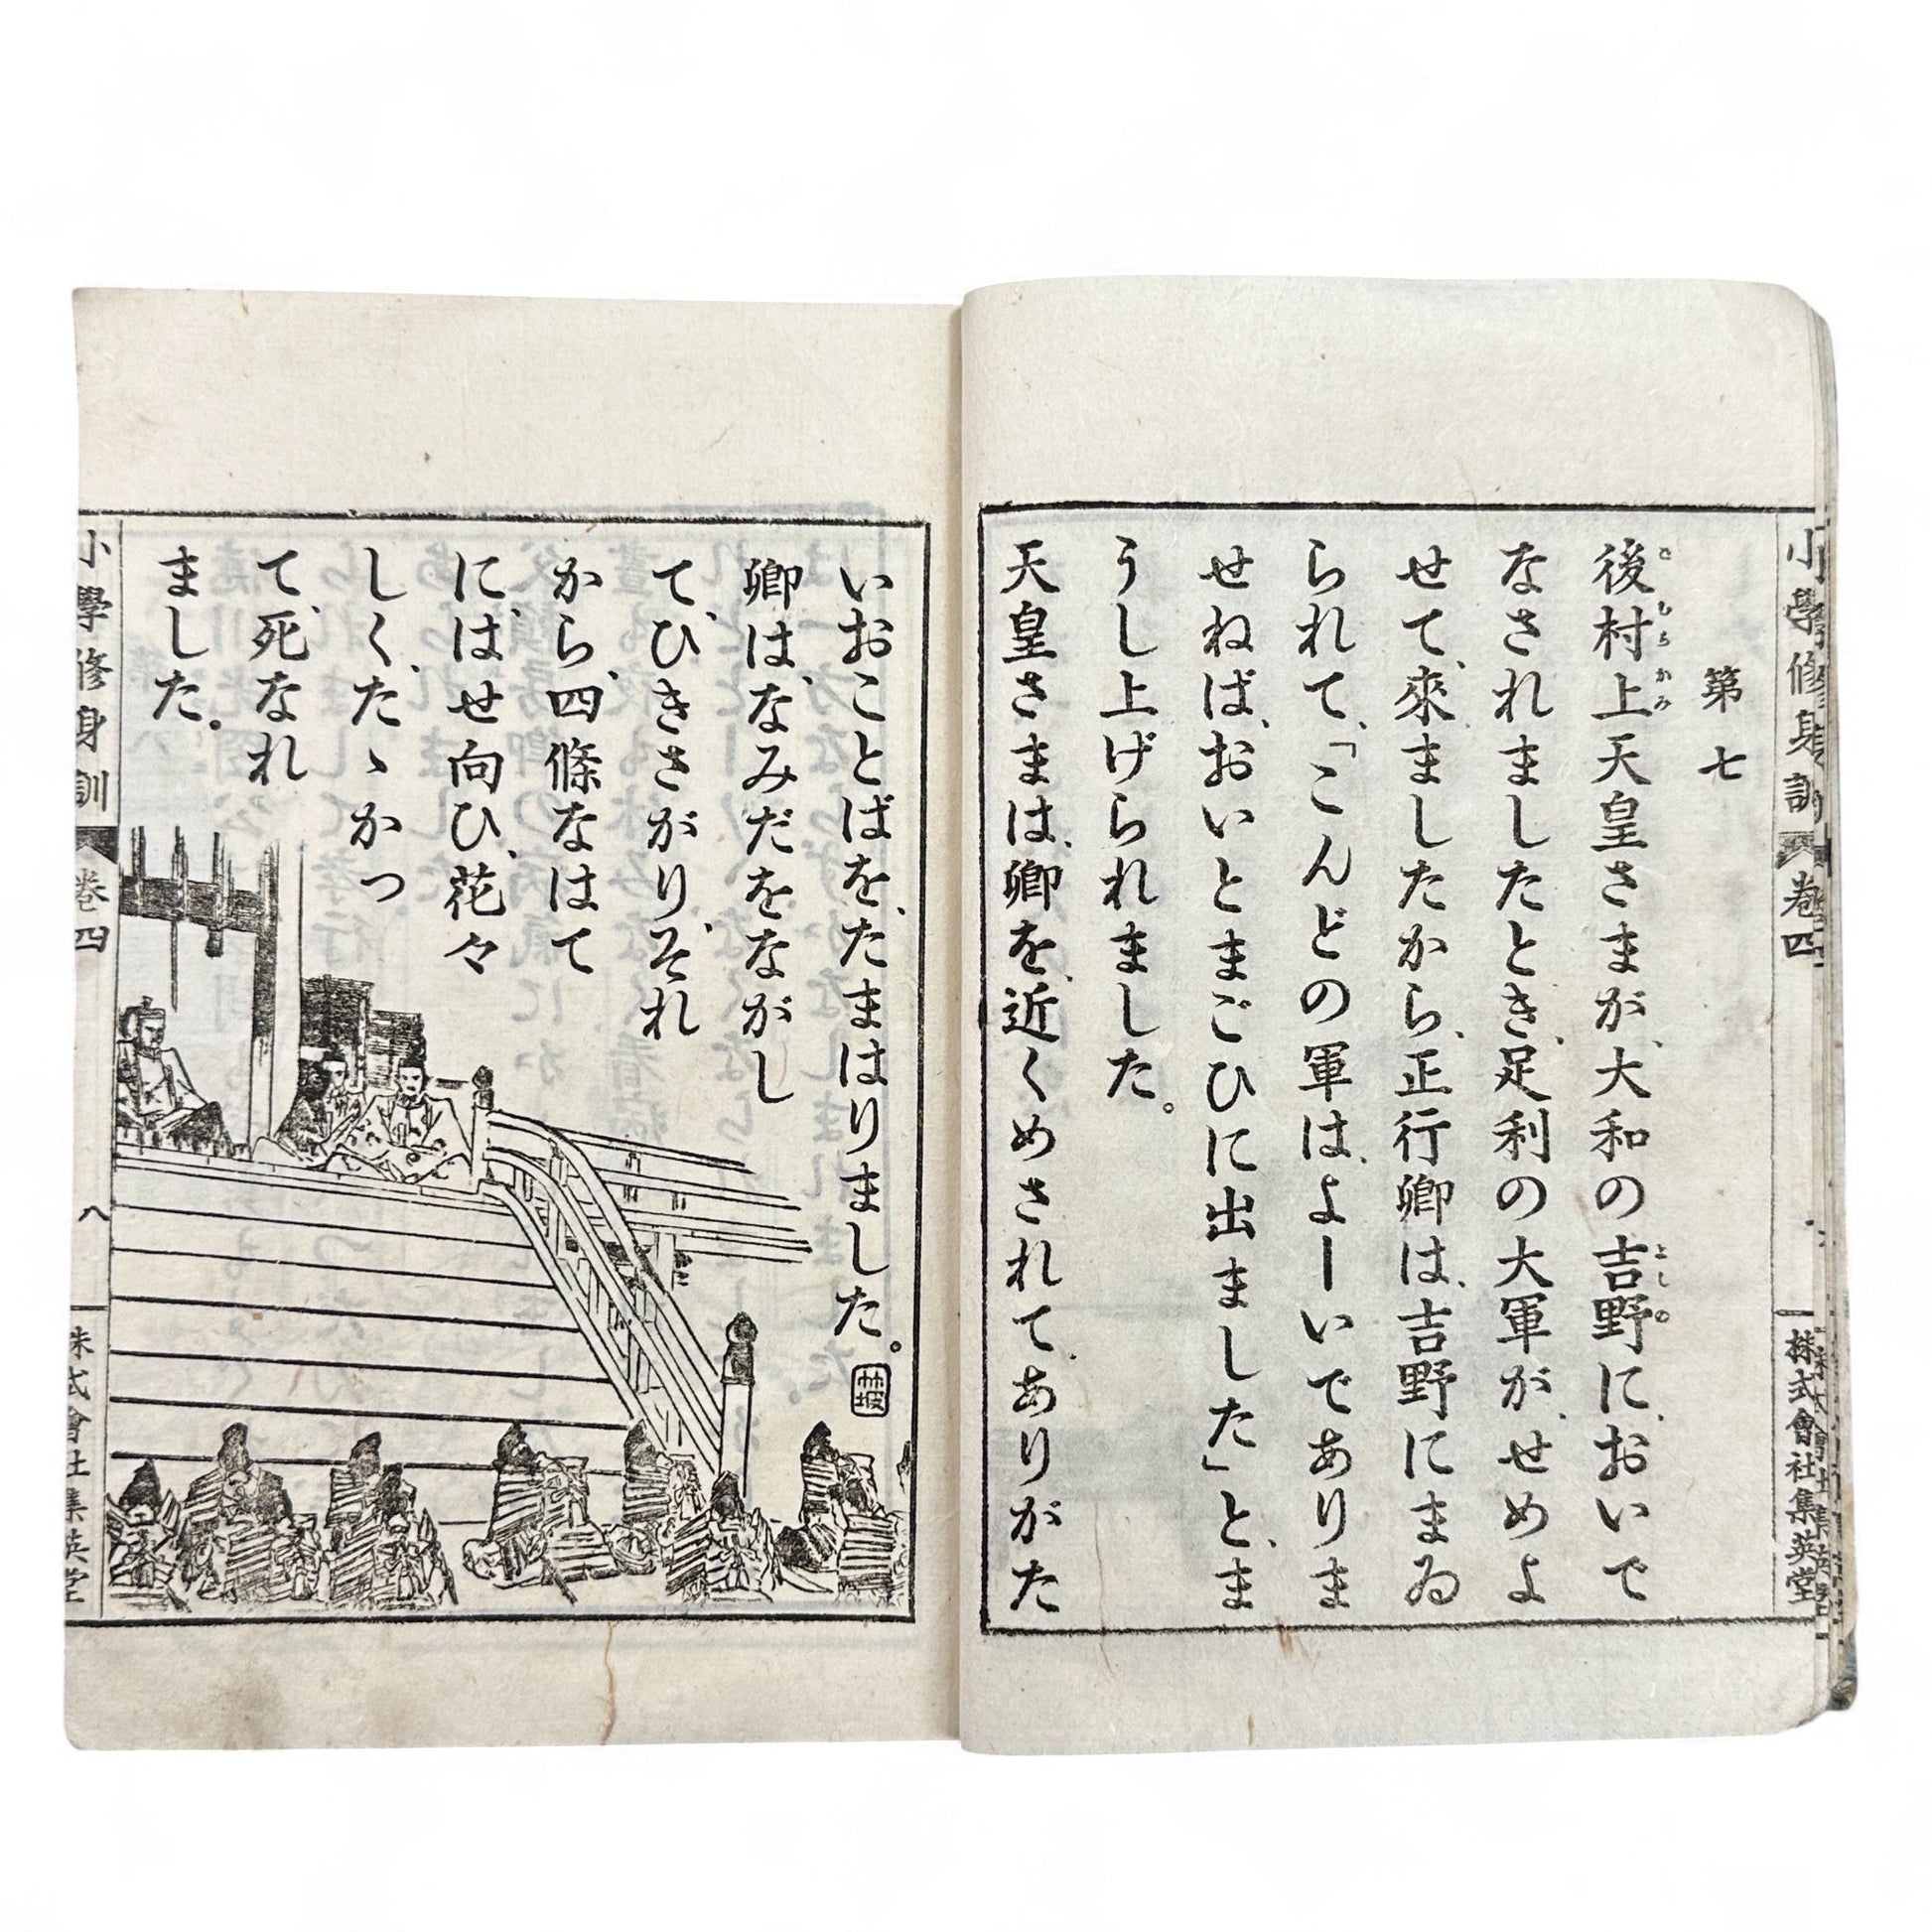 小學修身訓 卷四
株式會社集英堂
第七
後村上天皇さまが、大和の吉野に、おいで
なされましたとき、足利の大軍が、せめよ
せて、來ましたから、正行卿は、吉野にまゐ
られて、「こんどの軍は、よーいでありま
せねば、おいとまごひに出ました」と、ま
うし上げられました。
天皇さまは、卿を、近くめされて、ありがた
いおことばを、たまはりました。
卿は、なみだを、ながし
て、ひきさがり、それ
から、四條なはて
に、はせ向ひ、花々
しく、たゝかつ
て、死なれ
ました。
小學修身訓 卷四
八
株式會社集英堂